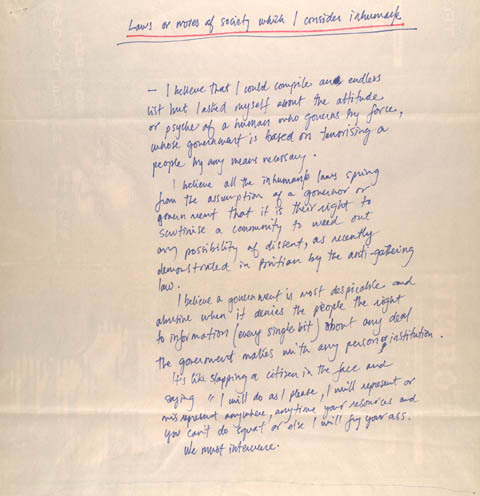 Laws or mores of society which I consider inhumane
– I believe that I could compile an endless
list but I asked myself about the attitude
or psyche of a human who governs by force,
whose government is based on terrorising a
people by any means necessary.
I believe all the inhumane laws spring
from the assumption of a governor or
government that it is their right to
scrutinise a community to weed out
any possibility of dissent, as recently
demonstrated in by the anti-gathering
law.
I believe a government is most despicable and
abusive when it denies the people the right
to information (every single bit) about any deal
the government makes with any person or institution.
It's like slapping a citizen in the face and
saying "I will do as I please, I will represent or
misrepresent anywhere, anytime your resources and
you can't do squat or else I will fry your ass.
We must intervene.